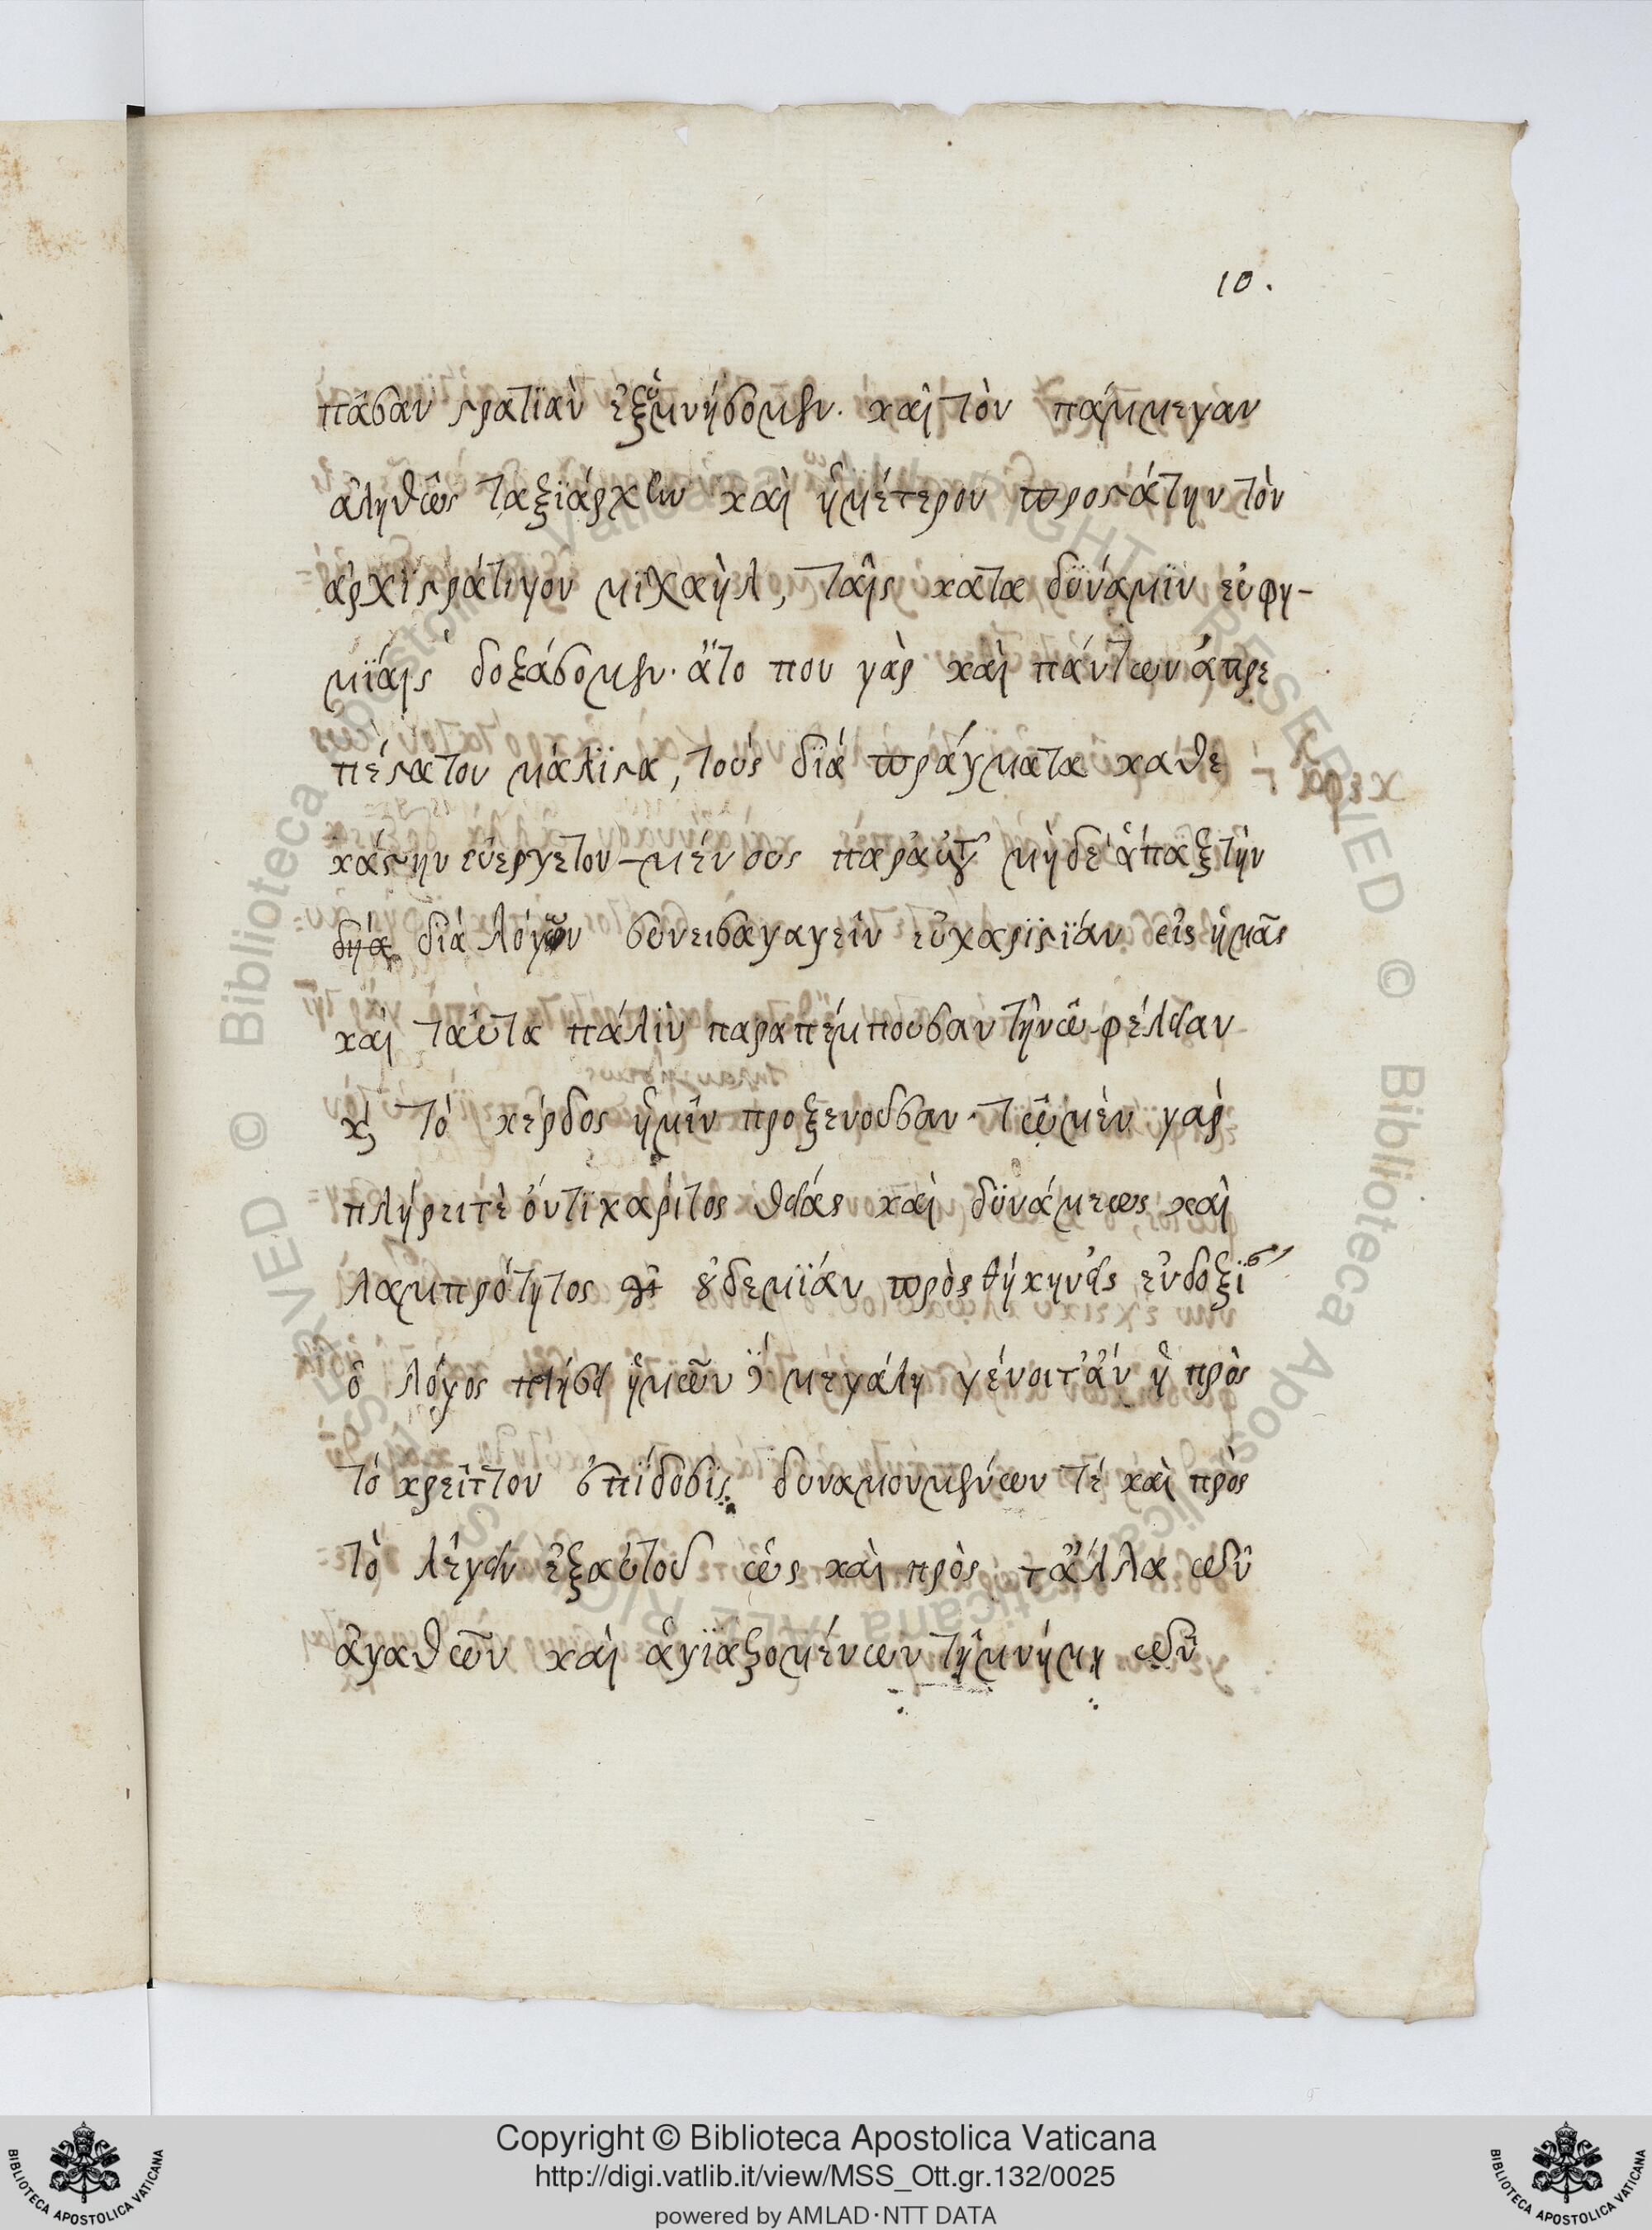 10.
πᾶσαν στρατϊὰν ἐξυμνήσομεν. καὶ τὸν πάμμεγαν
ἀληθῶς ταξϊάρχην καὶ ἡμέτερον προστάτην τὸν
ἀρχϊστράτιγον μϊχαὴλ, ταῖς κατα δϋνάμϊν εὐφη-
μϊάις δοξάσομεν. ἄτο που γὰρ καὶ πάντων ἀπρε
πέστατον μάλϊστα, τοὺς δϊὰ πράγματα καθε
κάστην εὐεργετου-μένους παραὐτοῦ μὴδε ἅπαξ τὴν
διὰ λόγων συνεισαγαγεῖν εὐχαρϊστϊάν εἰς ἡμᾶς
καὶ ταῦτα πάλϊν παραπέμπουσαν τὴν ὠ-φέλειαν
κ τό κέρδος ἡμῖν προξενοῦσαν. τῷ μὲν γὰρ
πλήρειτὲ ὄντϊ χάριτος θείας καὶ δϋνάμεως καὶ
λαμπρότητος οὐδεμϊάν πρὸς θήκην εἰς εὐδοξϊ
ὁ λόγος ποιήσει ἡμῶν ἡμῖν μεγάλη γένοιτ' ἂν ἡ πρὸς
τό κρεῖττον ἐπίδοσϊς. δυναμουμένων τέ καὶ πρὸς
τὸ λέγειν ἐξαὐτοῦ ὡς καὶ πρὸς τἄλλα τῶν
ἀγαθῶν καὶ ἁγϊαζομένων τῇ μνήμῃ τῶν
Copyright © Biblioteca Apostolica Vaticana
http://digi.vatlib.it/view/MSS_Ott.gr.132/0025
powered by AMLAD·NTT DATA